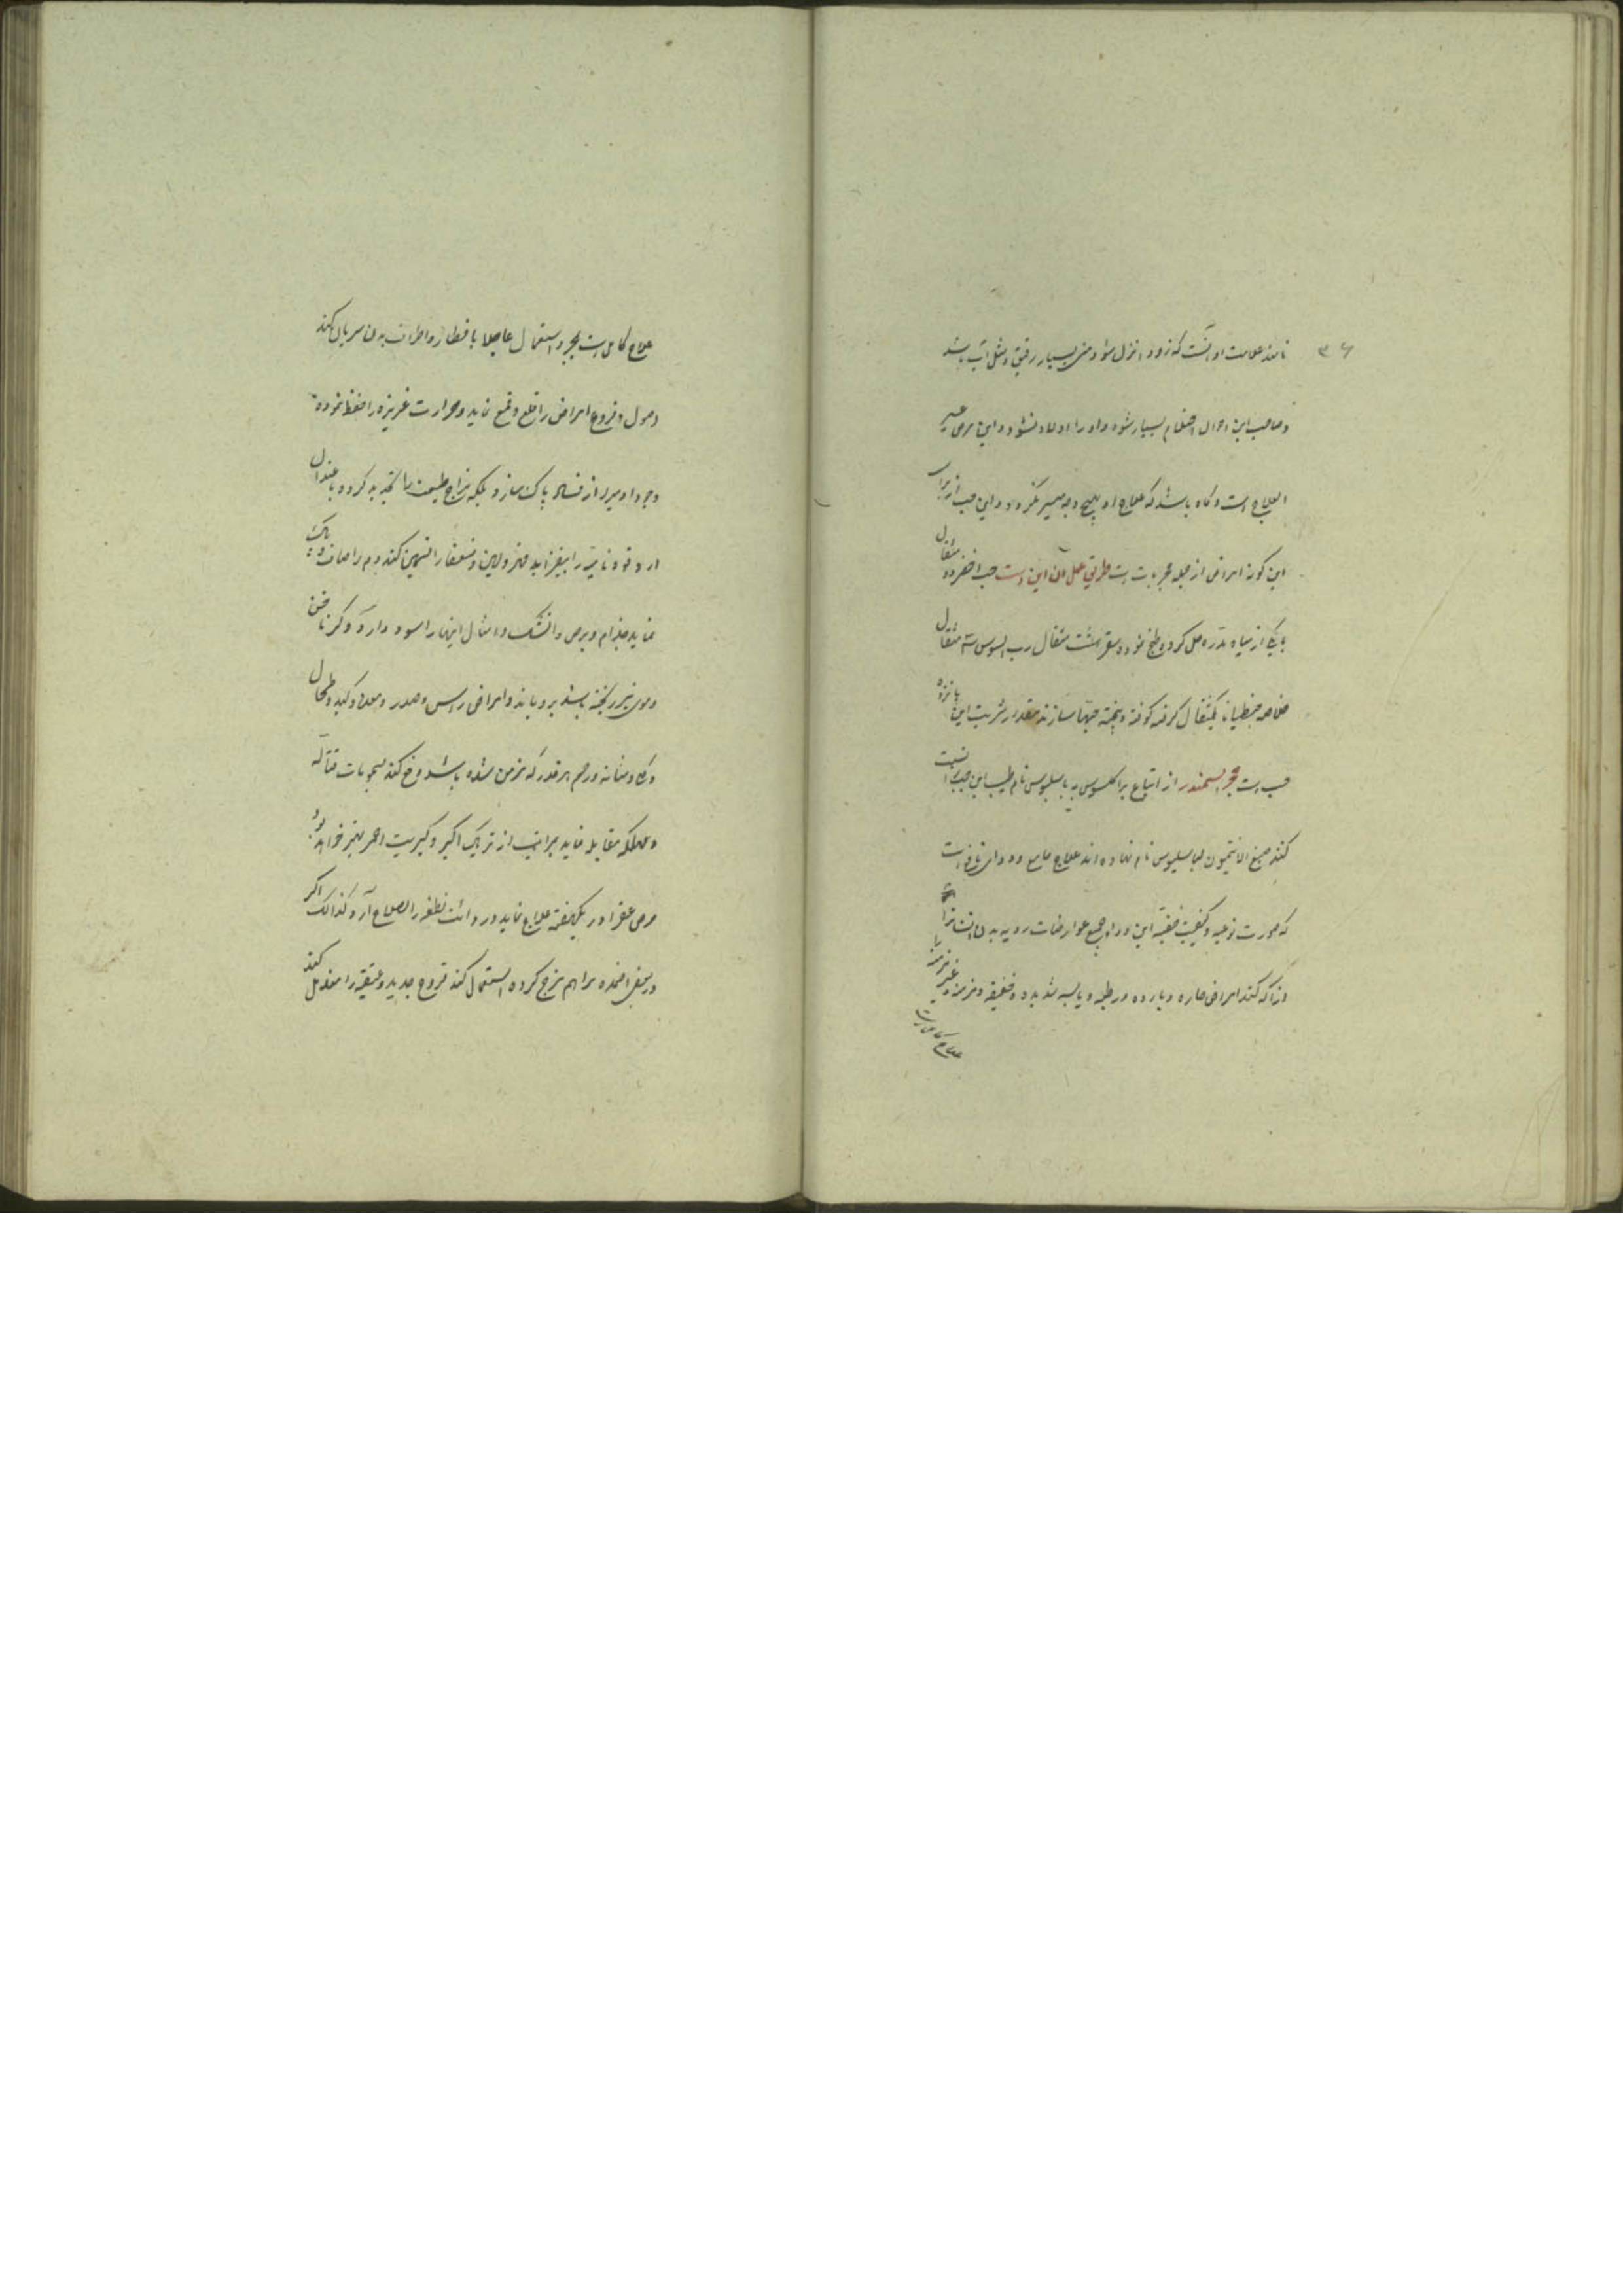 ۳۶
نامند علامت او انست که زود انزل شود و منی بسیار رقیق و مثل آب باشد
و صاحب این احوال احتلام بسیار شود و او را اولاد نشود و این مرض عسیر
العلاج است و کاه باشد که علاج او بهیچ وجه میسر نکردد و این حب از برای
این کونه امراض از جمله مجربات است طریق عمل ان این است حب اخضر دو مثقال
با یکی از میاه مدره حل کرده و طبخ نموده هشت مثقال رب السوس سه مثقال
خلاصه جنطیانا یکمثقال کرفته کوفته و بیخته حبها سازند مقدار شربت این پانزده
حب است از اتباع براکلسوس به باسیلیوس نام طبیب این حب را نسبت
کنند صبغ الانتیمون نام نهاده اند علاج جامع و دوای نافع است
که صورت نوعیه و کیفیت خفیه این دوا جمیع عوارضات ردیه بدن انسان را
ازاله کند امراض حاره و بارده و رطبه و یابسه شدیده و خفیفه و مزمنه و غیر مزمنه را
علاج کامل است
علاج کامل است بمجرد استعمال عاجلا باقطار و اطراف بدن سریان کند
اصول و فروع امراض را قلع و قمع نماید و حرارت غریزه را حفظ نموده
وجود ادمیرا از فساد پاک سازد بلکه مزاج طبیعت را تجدید کرده باعتدال
ارد قوه نامیه را بیفزاید و ضعفا را تسمین کند و دم را صاف و پاک
نماید جذام و برص و اتشک و امثال اینها را سود دارد و کر ناخن
و موی نیز ریخته باشد برویاند و امراض راس و صدر و معده و کبد و طحال
و کلی و مثانه و رحم هر قدر که مزمن شده باشد دفع کند بحیوبات قتاله
و مهلکه مقابله نماید بمراتب از تریاک اکبر و کبریت احمر بهتر خواهد بود
مرض عقر را در یکهفته علاج نماید و ردائت نطفه را اصلاح آرد و کذالک اکر
در بعض اضمده مراهم مزج کرده استعمال کند قروح جدید و عتیقه را مندمل کند